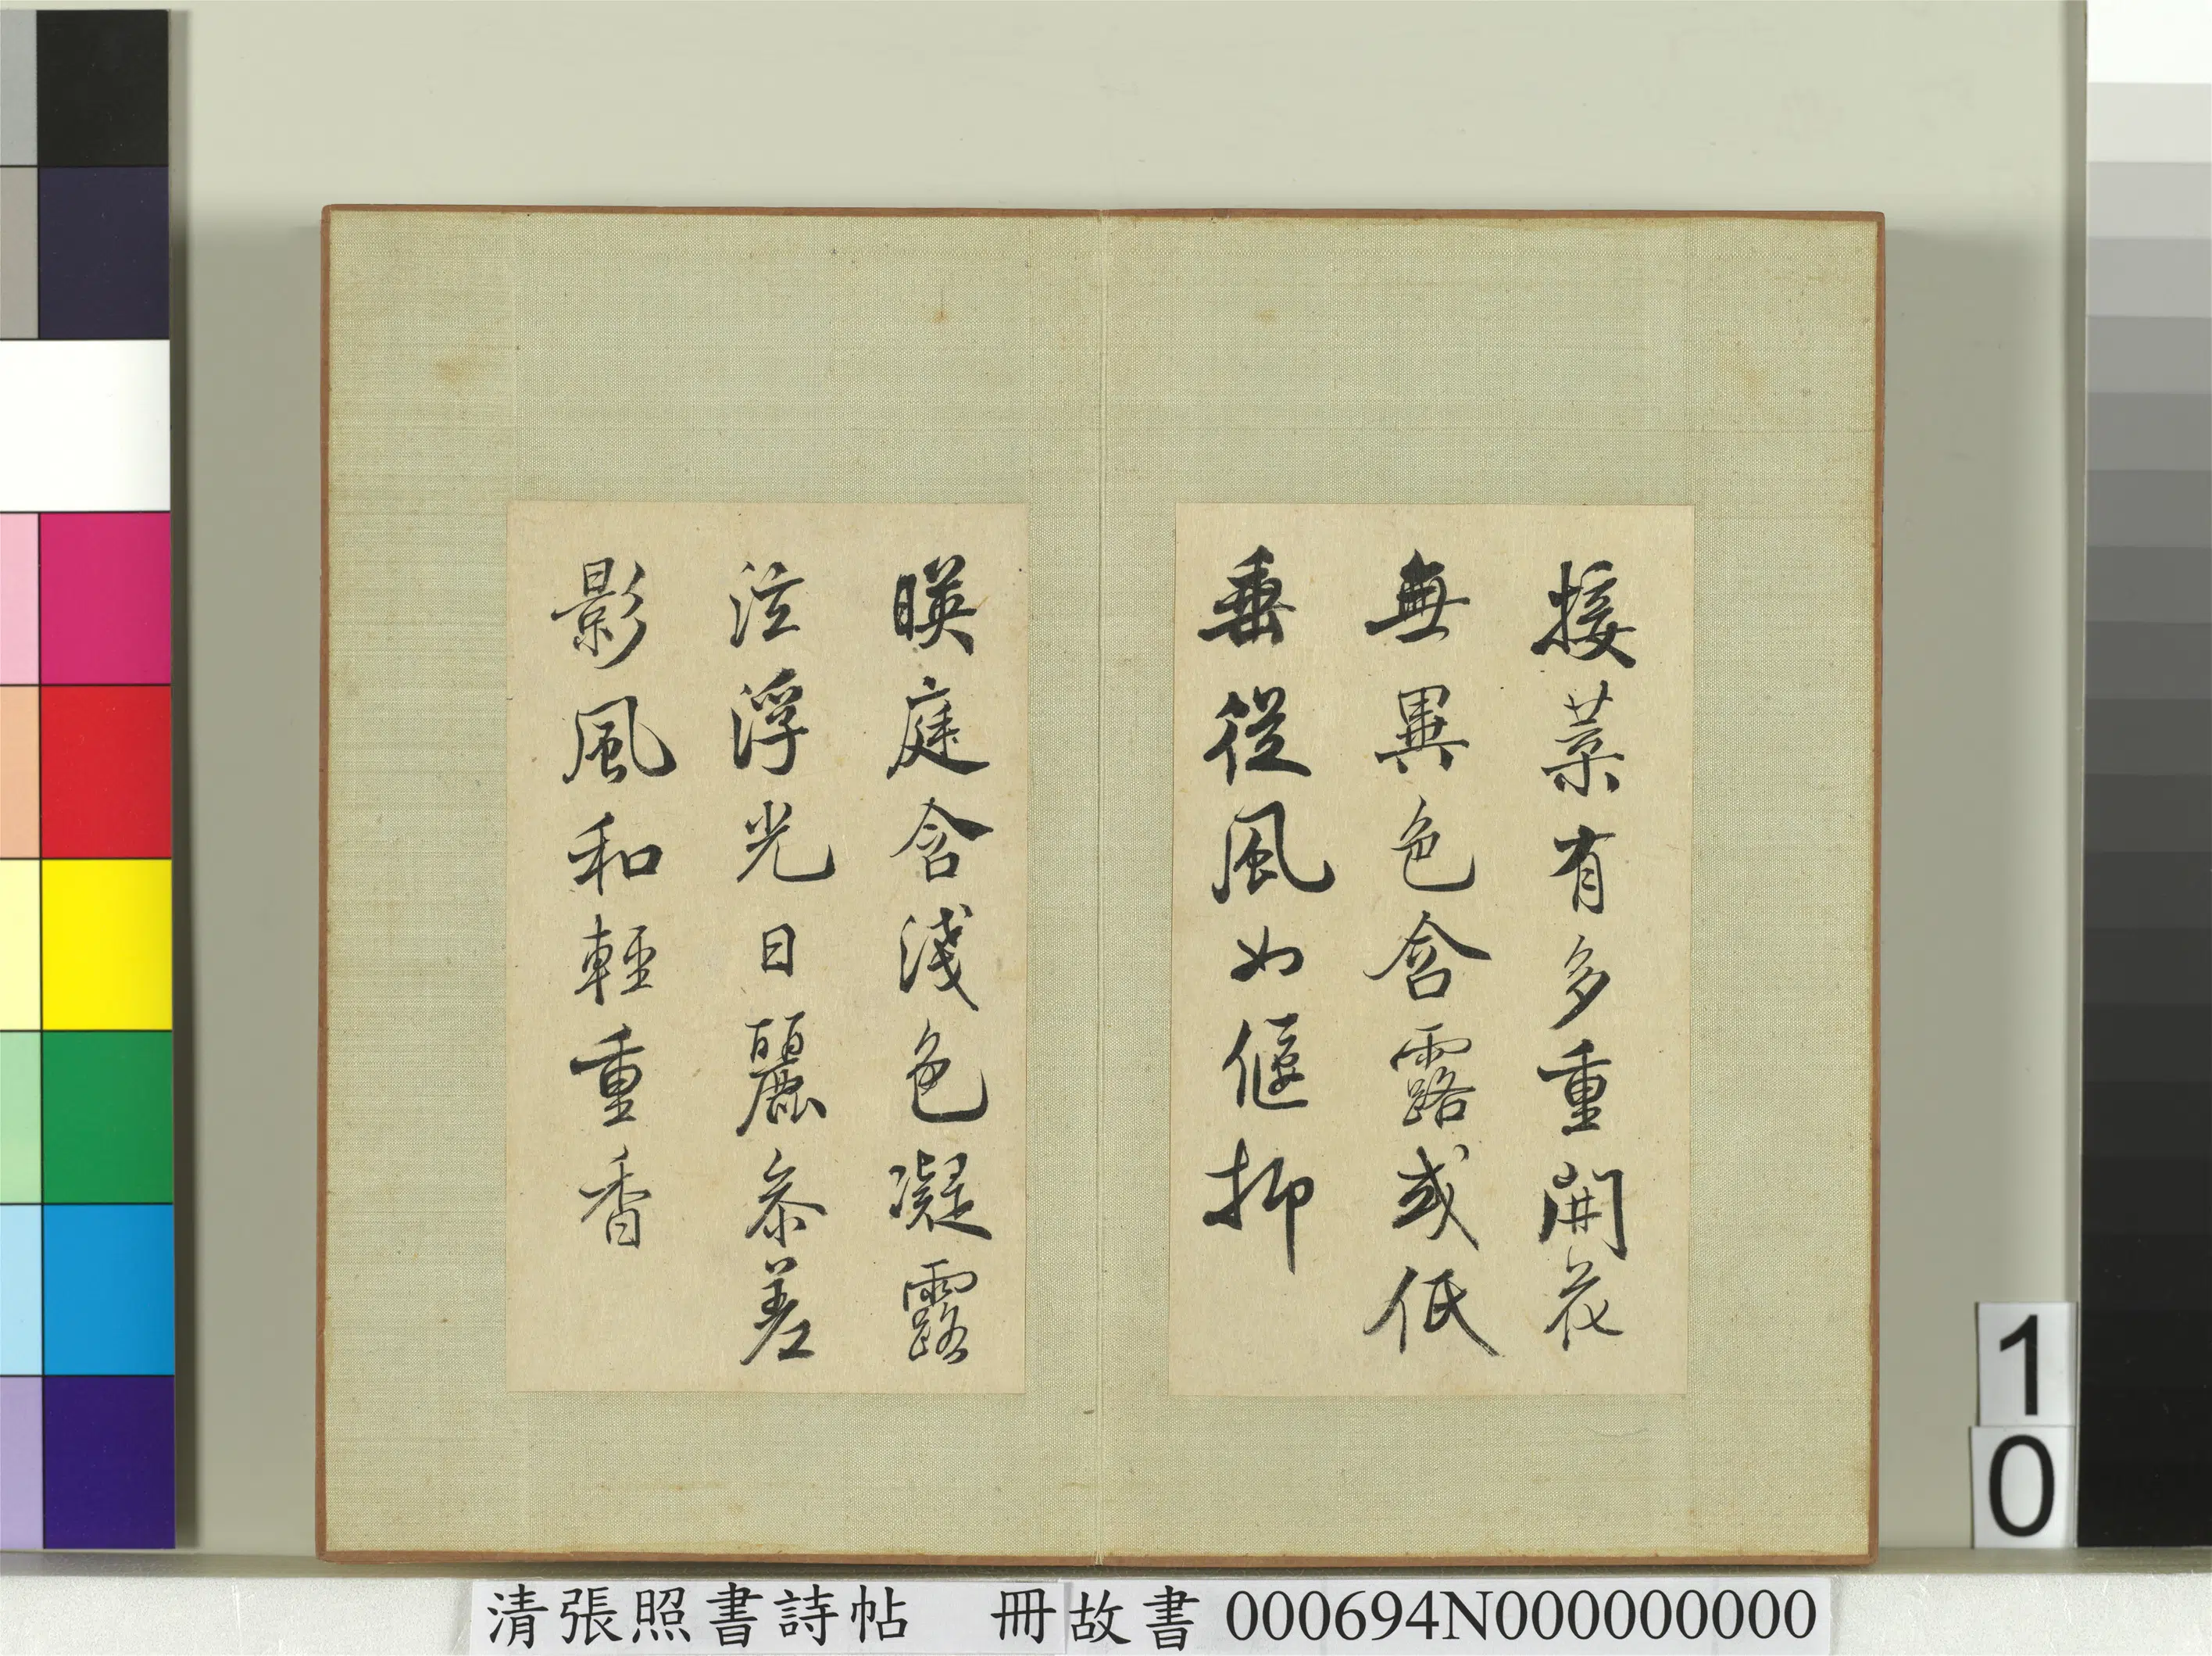 接葉有多重開花
無異色含露或低
垂從風如偃抑
暎庭含淺色凝露
泫浮光日麗參差
影風和輕重香
清張照書詩帖 冊故書 000694N000000000
1
0